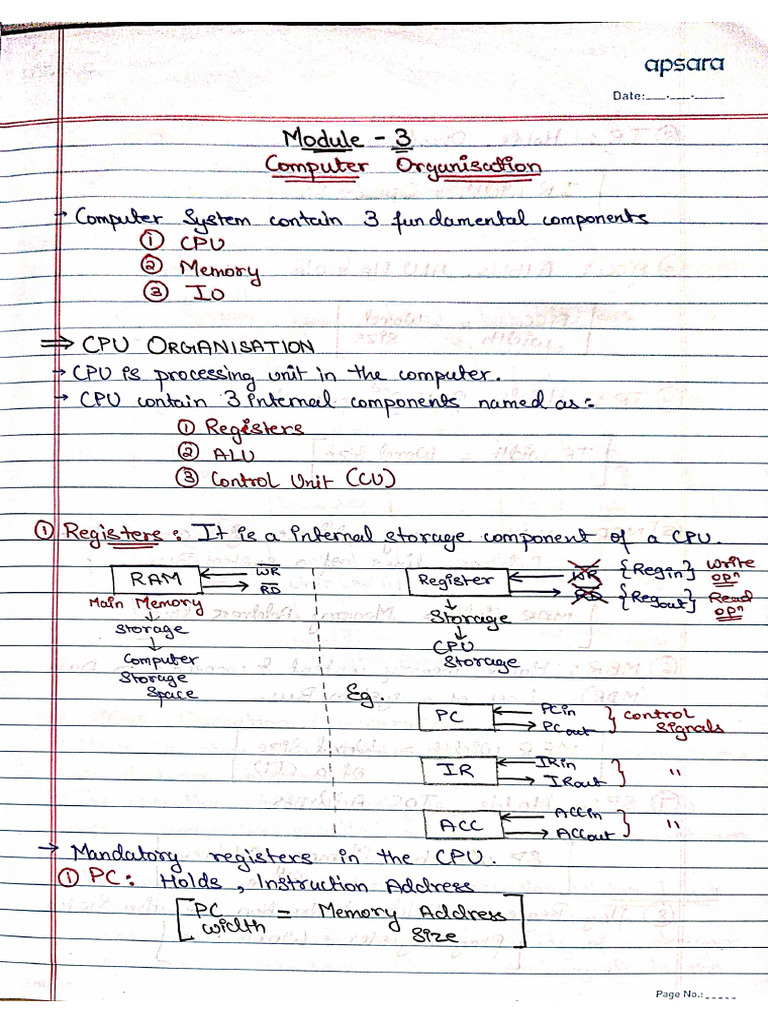 apsara
Date:__.__.____
Module - 3
Computer Organisation
→ Computer System contain 3 fundamental components
① CPU
② Memory
③ IO
⇒ CPU ORGANISATION
→ CPU is processing unit in the computer.
→ CPU contain 3 internal components named as:-
① Registers
② ALU
③ Control Unit (CU)
① Registers: It is a internal storage component of a CPU.
RAM ← W̅R̅
→ R̅D̅
Main Memory
↓
Storage
↓
Computer
Storage
Space
Register ← W̅R̅ {Regin} Write opⁿ
→ R̅D̅ {Regout} Read opⁿ
↓
Storage
↓
CPU
Storage
Eg.
PC ← PCin
→ PCout } Control Signals
IR ← IRin
→ IRout } "
ACC ← ACCin
→ ACCout } "
→ Mandatory registers in the CPU.
① PC: Holds, Instruction Address
[PC width = Memory Address Size]
Page No.:_____